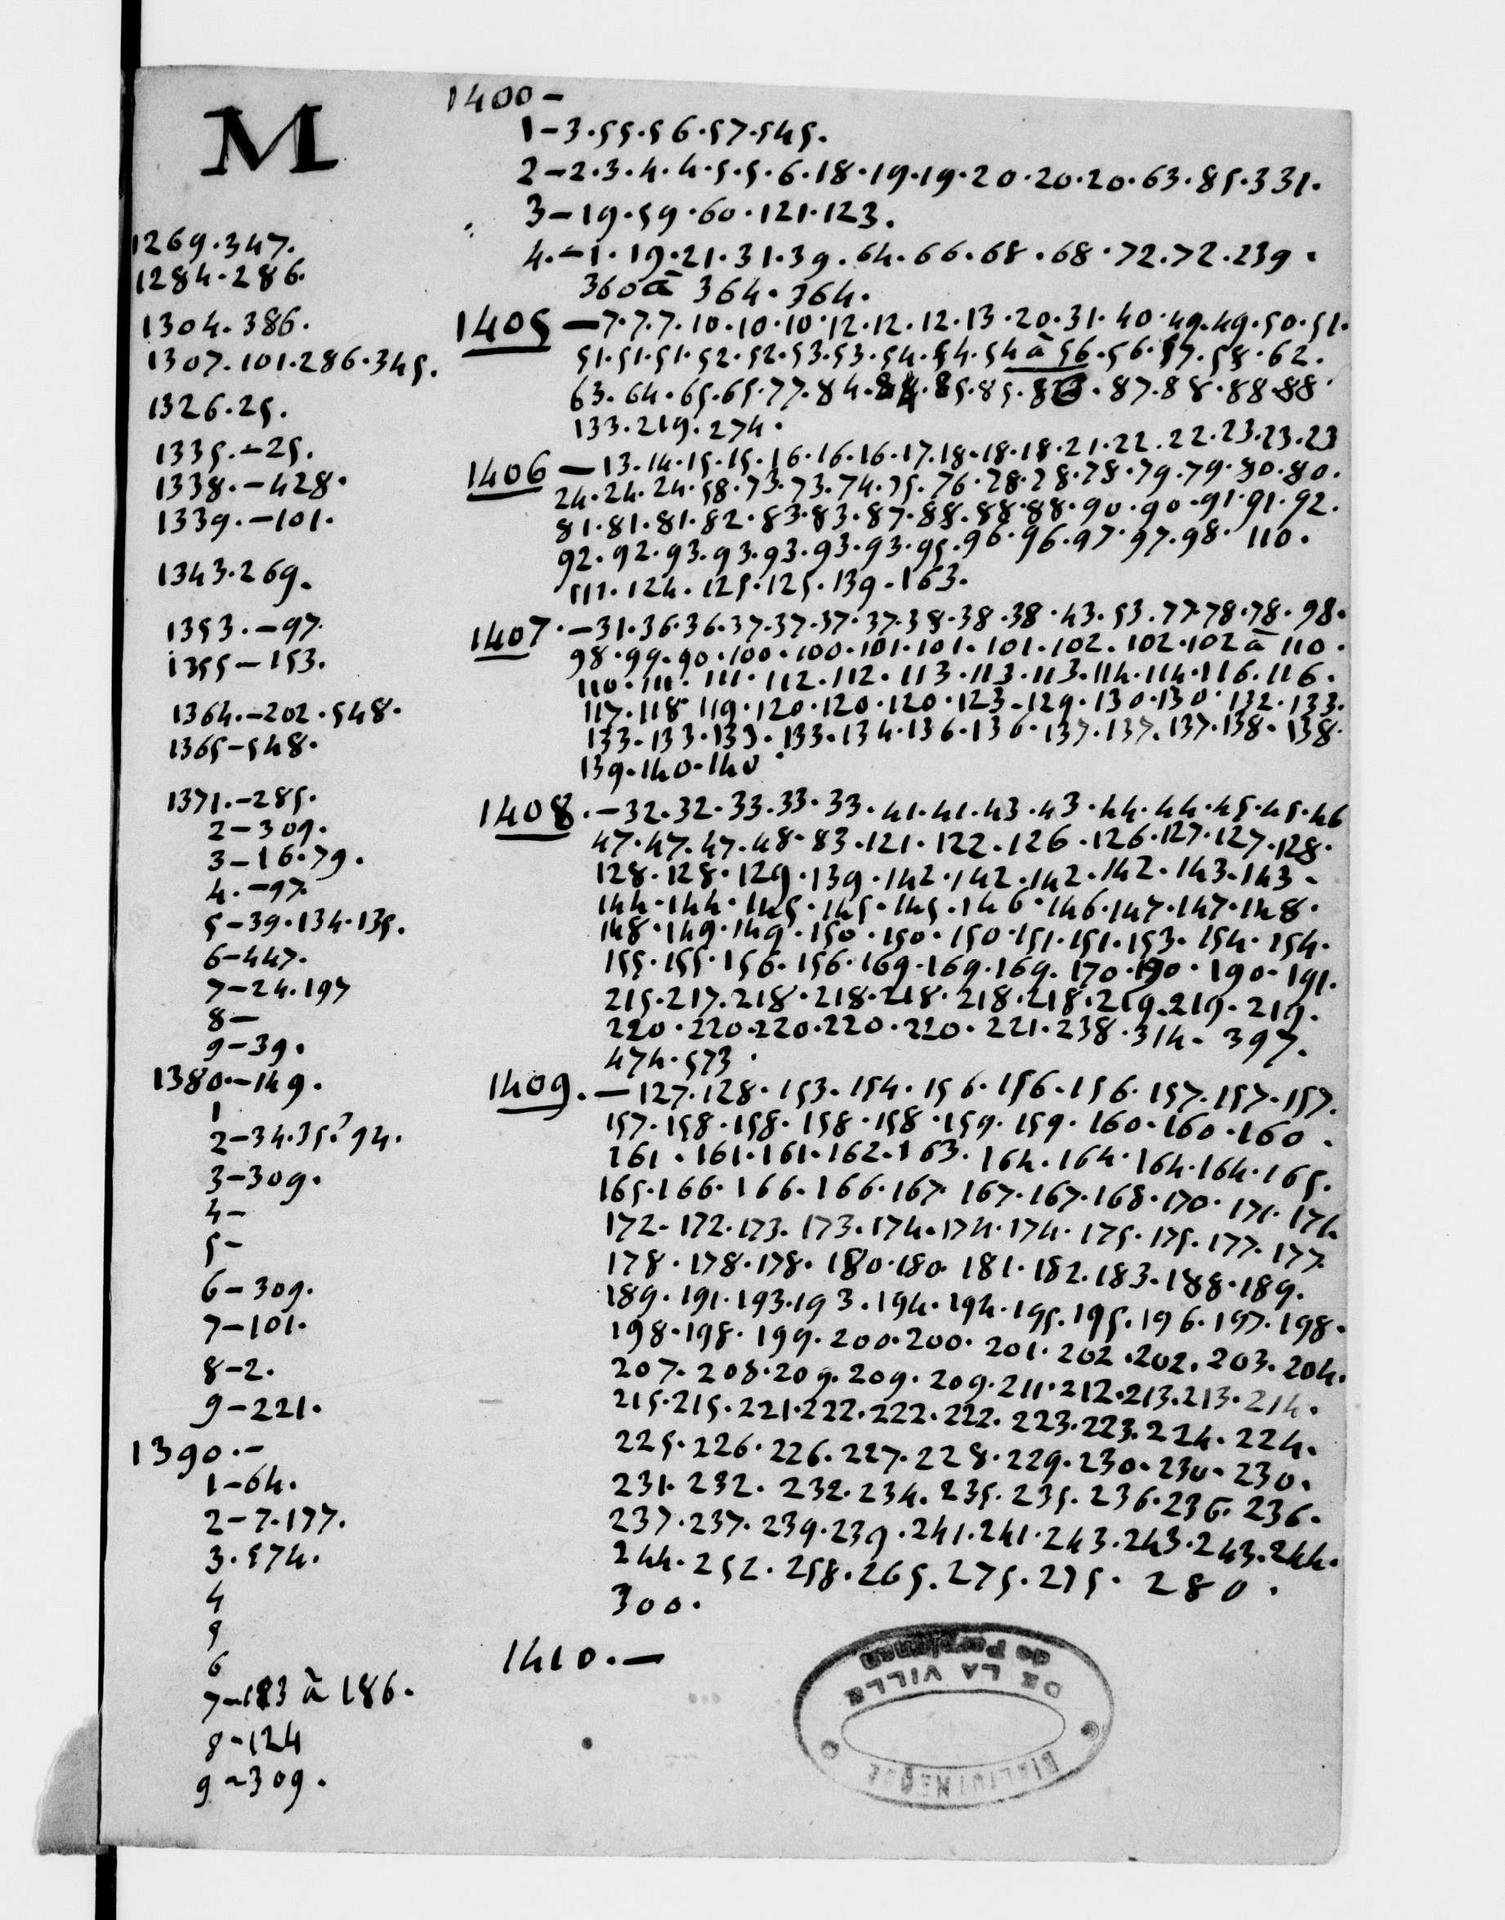 M
1269.347.
1284.286.
1304.386.
1307.101.286.345.
1326.25.
1335.-25.
1338.-428.
1339.-101.
1343.269.
1353.-97.
1355-153.
1364.-202.548.
1365-548.
1371.-285.
2-309.
3-16.79.
4.-97.
5-39.134.135.
6-447.
7-24.197
8-
9-39.
1380.-149.
1
2-34.35?94.
3-309.
4-
5-
6-309.
7-101.
8-2.
9-221.
1390.-
1-64.
2-7.177.
3.574.
4
5
6
7-183 à 186.
8-124
9-309.
1400-
1-3.55.56.57.545.
2-2.3.4.4.5.5.6.18.19.19.20.20.20.63.85.331.
3-19.59.60.121.123.
4.-1.19.21.31.39.64.66.68.68.72.72.239.
360 à 364.364.
1405-7.7.7.10.10.10.12.12.12.13.20.31.40.49.49.50.51.
51.51.51.52.52.53.53.54.54.54 à 56.56.57.58.62.
63.64.65.65.77.84.84.85.85.86.87.88.88.88
133.219.274.
1406-13.14.15.15.16.16.16.17.18.18.18.21.22.22.23.23.23
24.24.24.58.73.73.74.75.76.78.78.78.79.79.80.80.
81.81.81.82.83.83.87.88.88.88.90.90.91.91.92.
92.92.93.93.93.93.93.95.96.96.97.97.98.110.
111.124.125.125.139.163.
1407.-31.36.36.37.37.37.37.38.38.38.43.53.77.78.78.98.
98.99.90.100.100.101.101.101.102.102.102 à 110.
110.111.111.112.112.113.113.113.114.114.116.116.
117.118.119.120.120.120.123-129.130.130.132.133.
133.133.133.133.134.136.136.137.137.137.138.138.
139.140.140.
1408.-32.32.33.33.33.41.41.43.43.44.44.45.45.46
47.47.47.48.83.121.122.126.126.127.127.128.
128.128.129.139.142.142.142.142.143.143-
144.144.145.145.145.146.146.147.147.148.
148.149.149.150.150.150.151.151.153.154.154.
155.155.156.156.169.169.169.170.190.190.191.
215.217.218.218.218.218.218.219.219.219.
220.220.220.220.220.221.238.314.397.
474.573.
1409.-127.128.153.154.156.156.156.157.157.157.
157.158.158.158.158.159.159.160.160.160.
161.161.161.162.163.164.164.164.164.165.
165.166.166.166.167.167.167.168.170.171.171.
172.172.173.173.174.174.174.175.175.177.177.
178.178.178.180.180.181.182.183.188.189.
189.191.193.193.194.194.195.195.196.197.198.
198.198.199.200.200.201.202.202.203.204.
207.208.209.209.209.211.212.213.213.214.
215.215.221.222.222.222.223.223.224.224.
225.226.226.227.228.229.230.230.230.
231.232.232.234.235.235.236.236.236.
237.237.239.239.241.241.243.243.243.244.
244.252.258.265.275.275.280.
300.
1410.-
BIBLIOTHEQUE
DE LA VILLE